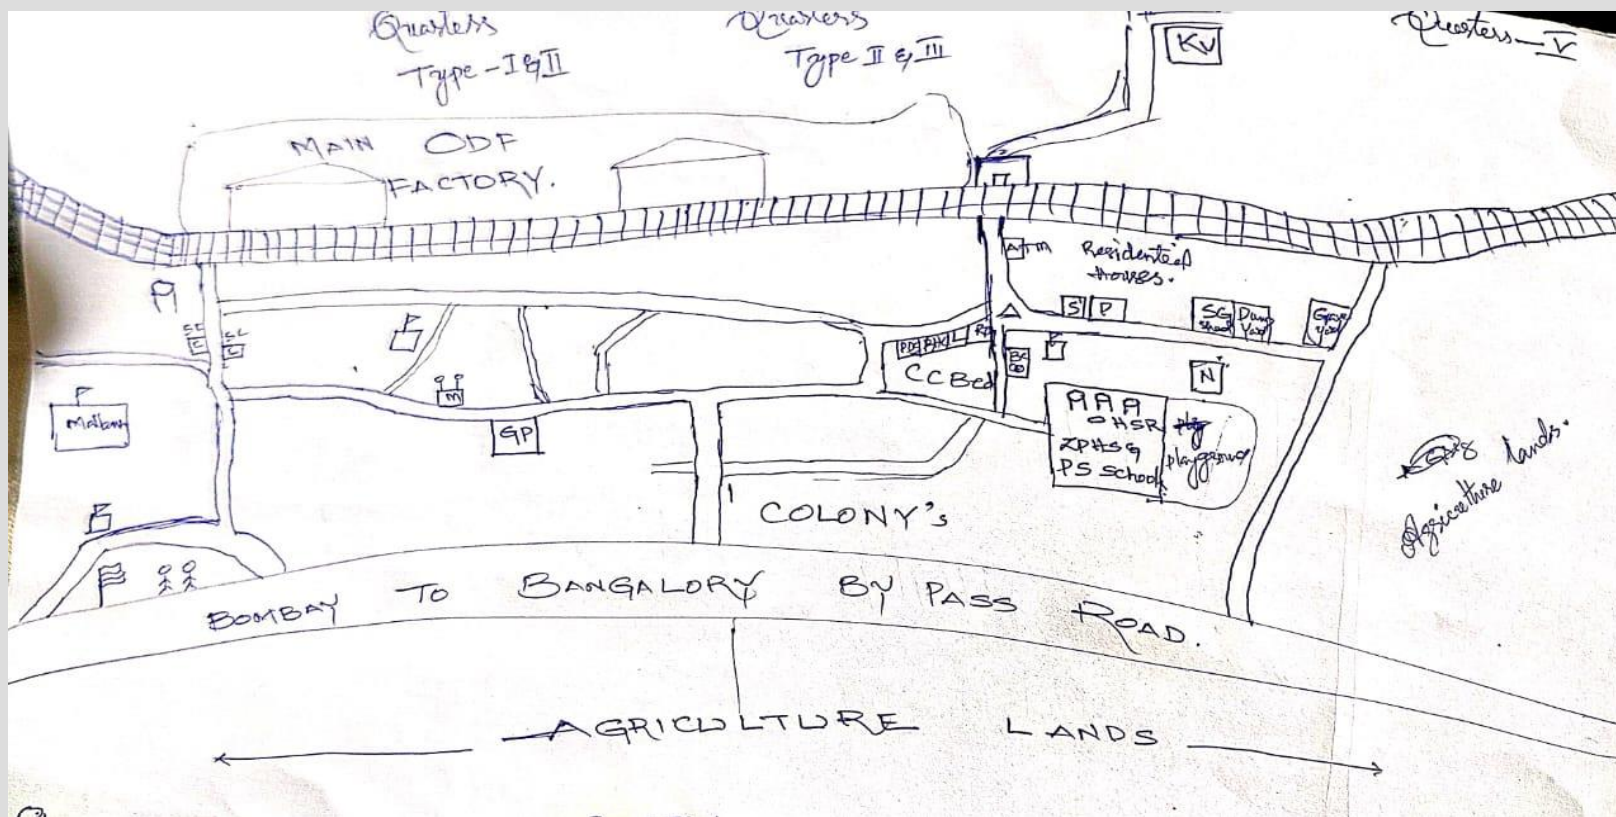 Quarters
Type - I & II
Quarters
Type II & III
KV
Quarters - V
MAIN ODF
FACTORY.
ATM
Residential
Houses.
S
P
SG
Dum
Yard
Grave
Yard
BC
CC Bed
N
M
GP
C
C
OHSR
ZPHSG
PS School
playground
COLONY's
Agriculture lands.
BOMBAY TO BANGALORY BY PASS ROAD.
AGRICULTURE LANDS